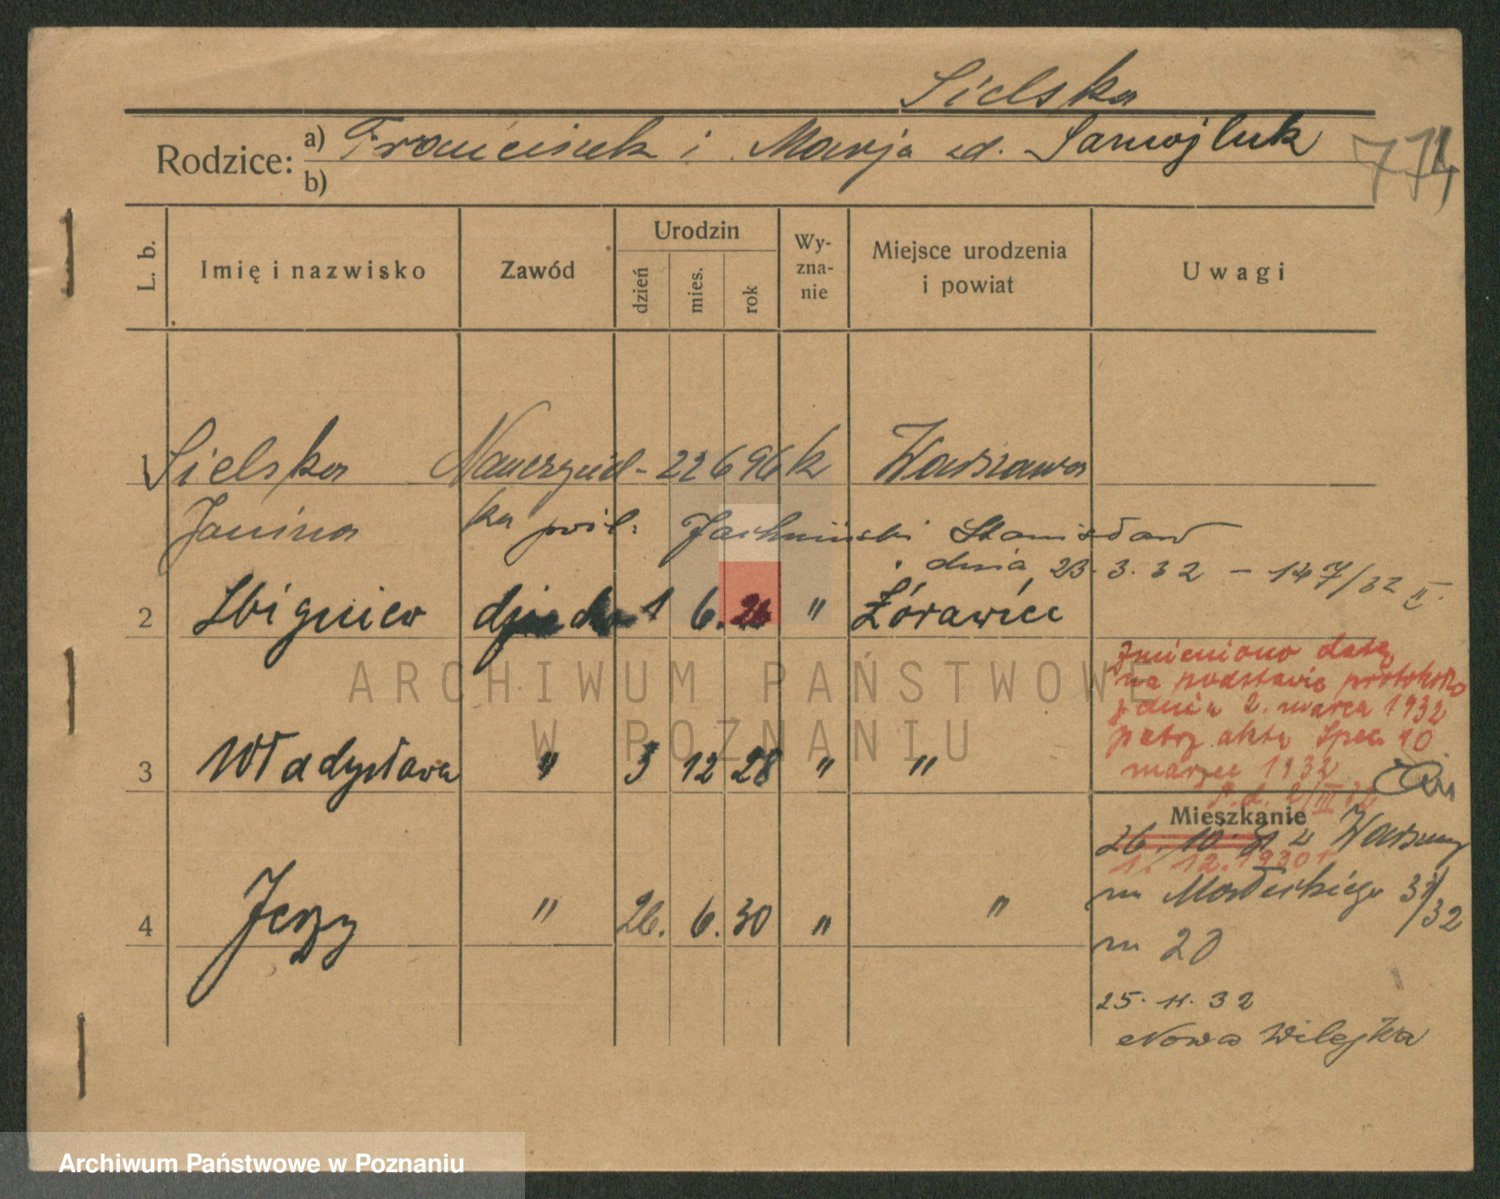 Sielska
Rodzice: a) Franciszek i Marja zd. Samojluk
b)
774
L. b. Imię i nazwisko Zawód Urodzin dzień mies. rok Wy-zna-nie Miejsce urodzenia i powiat Uwagi
1 Sielska Nauczyciel- 22 6 96 k Warszawa
Janina ka pril. Jachniński Stanisław
dnia 23.3.32 – 147/32 II
2 Zbigniew 1 6. 26 " Żórawiec
Zmieniono datę
na podstawie protokołu
z dnia 2. marca 1932
patrz akta Spec. 10
marzec 1932
3 Władysława " 3 12 28 " "
Mieszkanie
26. 10. 31 z Warszawy
1. 12. 1930 r
4 Jerzy " 26. 6. 30 " "
m 20
25. 11. 32
Nowa Wilejka
ARCHIWUM PAŃSTWOWE
W POZNANIU
Archiwum Państwowe w Poznaniu